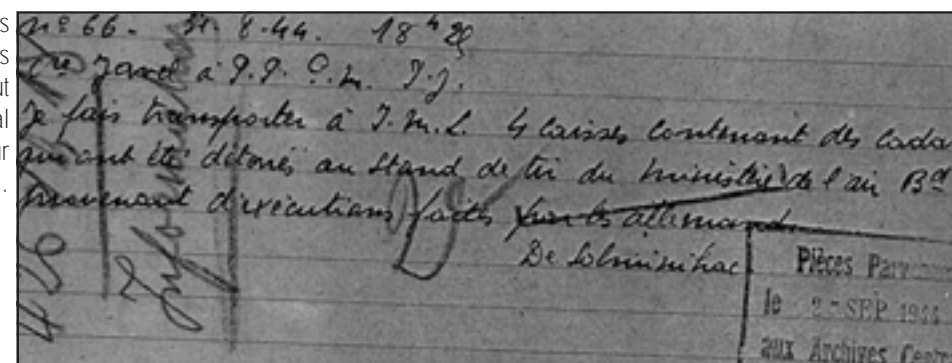 s
s
ut
al
ur
.
n° 66. - 31. 8.44. 18h 25
Cre Javel à P.P. O.M. P.J.
Je fais transporter à I.M.L. 4 caisses contenant des cada
qui ont été déterrés au stand de tir du ministère de l'air Bd
provenant d'exécutions faites par les allemands.
De Solminihac
Informations
Pièces Parvenu
le 2 - SEP 1944
aux Archives Centr